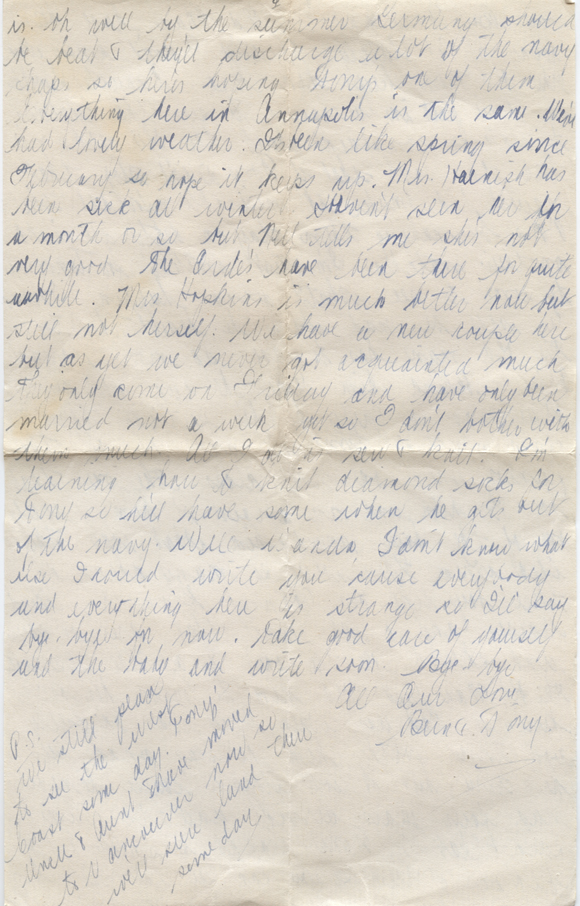 is. Oh well by the summer Germany should
be beat & they'll discharge a lot of the navy
chaps so here's hoping Tony's one of them
Everything here in Annapolis is the same. We've
had lovely weather. It's been like spring since
February so hope it keeps up. Mrs. has
been sick all winter. I haven't seen her for
a month or so but tells me she's not
very good. The have been there for quite
awhile. Mrs Hopkins is much better now but
still not herself. We have a new couple here
but as yet we never got acquainted much
They only come on Friday and have only been
married not a week yet so I don't bother with
them much. All I do is sew & knit. I'm
learning how to knit diamond socks for
Tony so he'll have some when he gets out
of the navy. Well Wanda I don't know what
else I could write you 'cause everybody
and everything here is strange so I'll say
bye-bye for now. Take good care of yourself
and the baby and write soon. Bye-bye
All Our Love
Tony.
P.S.
We still plan
to see the west
coast some day. Tony's
Uncle & Aunt have moved
to Vancouver now so
we'll sure land there
some day